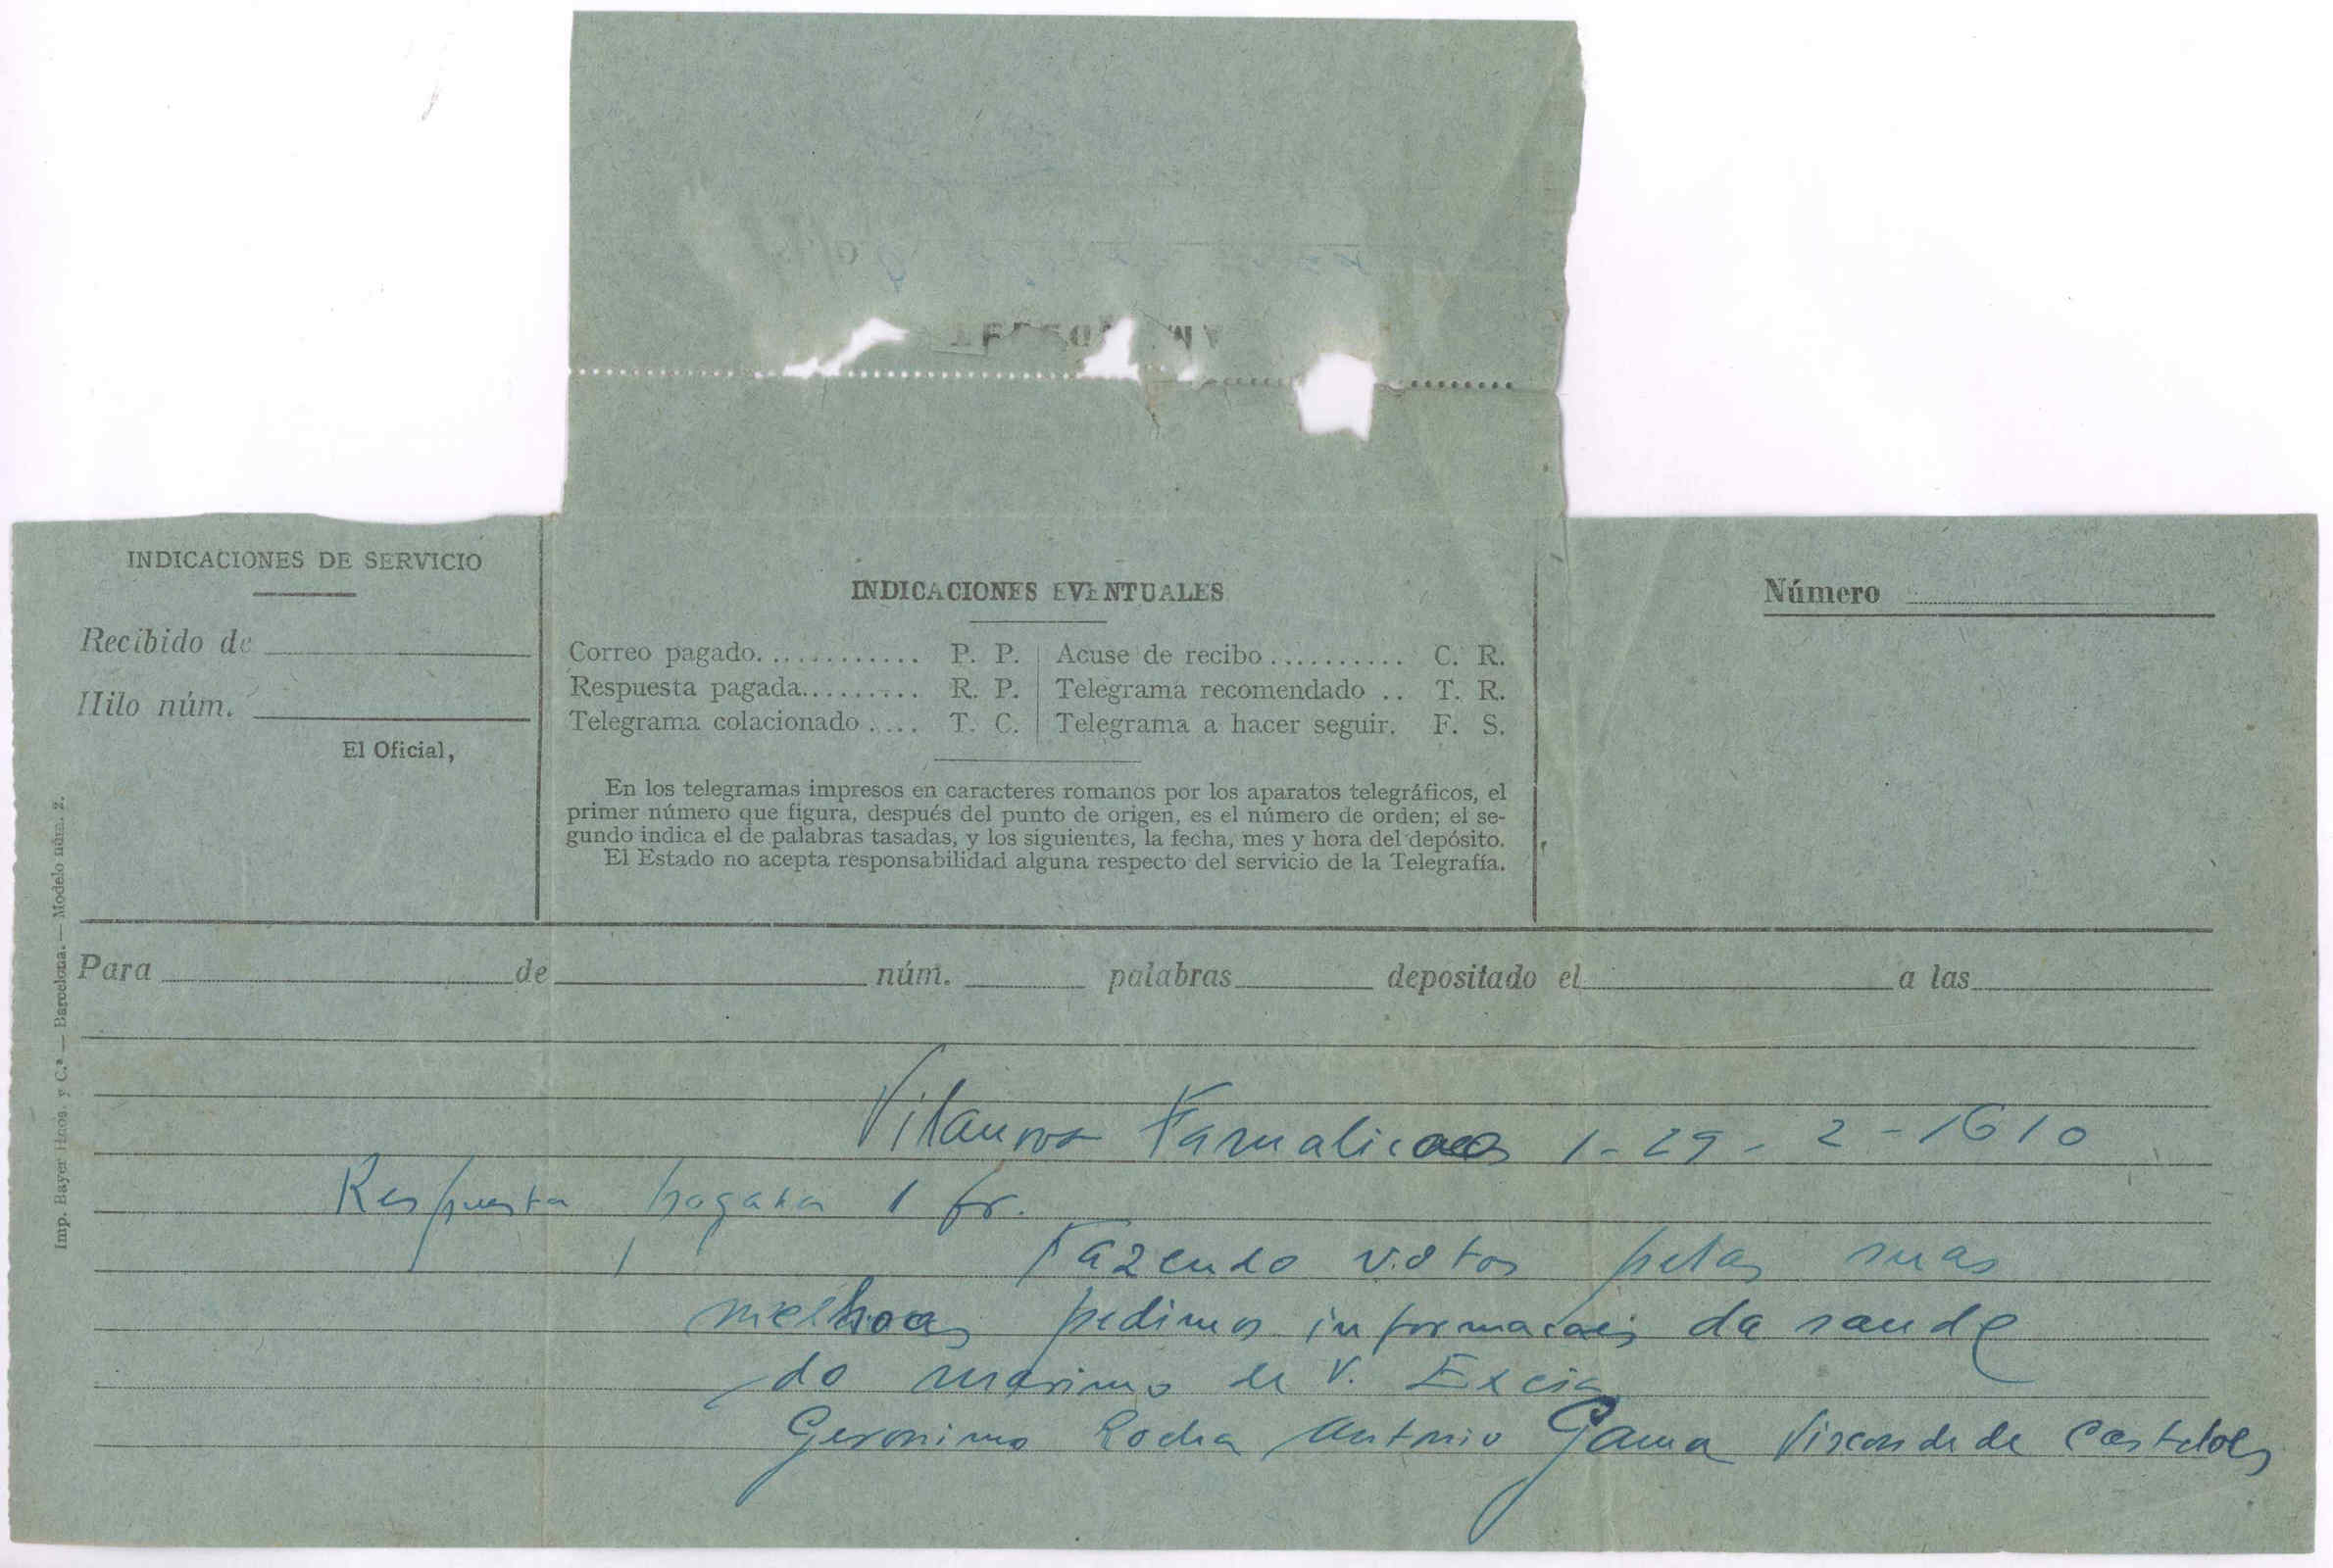 INDICACIONES DE SERVICIO
Recibido de
Hilo núm.
El Oficial,
INDICACIONES EVENTUALES
Correo pagado............ P. P.
Respuesta pagada......... R. P.
Telegrama colacionado .... T. C.
Acuse de recibo .......... C. R.
Telegrama recomendado .. T. R.
Telegrama a hacer seguir. F. S.
En los telegramas impresos en caracteres romanos por los aparatos telegráficos, el
primer número que figura, después del punto de origen, es el número de orden; el se-
gundo indica el de palabras tasadas, y los siguientes, la fecha, mes y hora del depósito.
El Estado no acepta responsabilidad alguna respecto del servicio de la Telegrafía.
Número
Imp. Bayer Hnos. y C.ª — Barcelona. — Modelo núm. 2.
Para de núm. palabras depositado el a las
Vilanova Famalicao 1-29-2-1610
Respuesta pagada 1 fr.
Fazendo votos pelas suas
melhoras pedimos informacois da saude
do maximo de V. Excia
Geronimo Rocha Antonio Gama Visconde de Casteloes